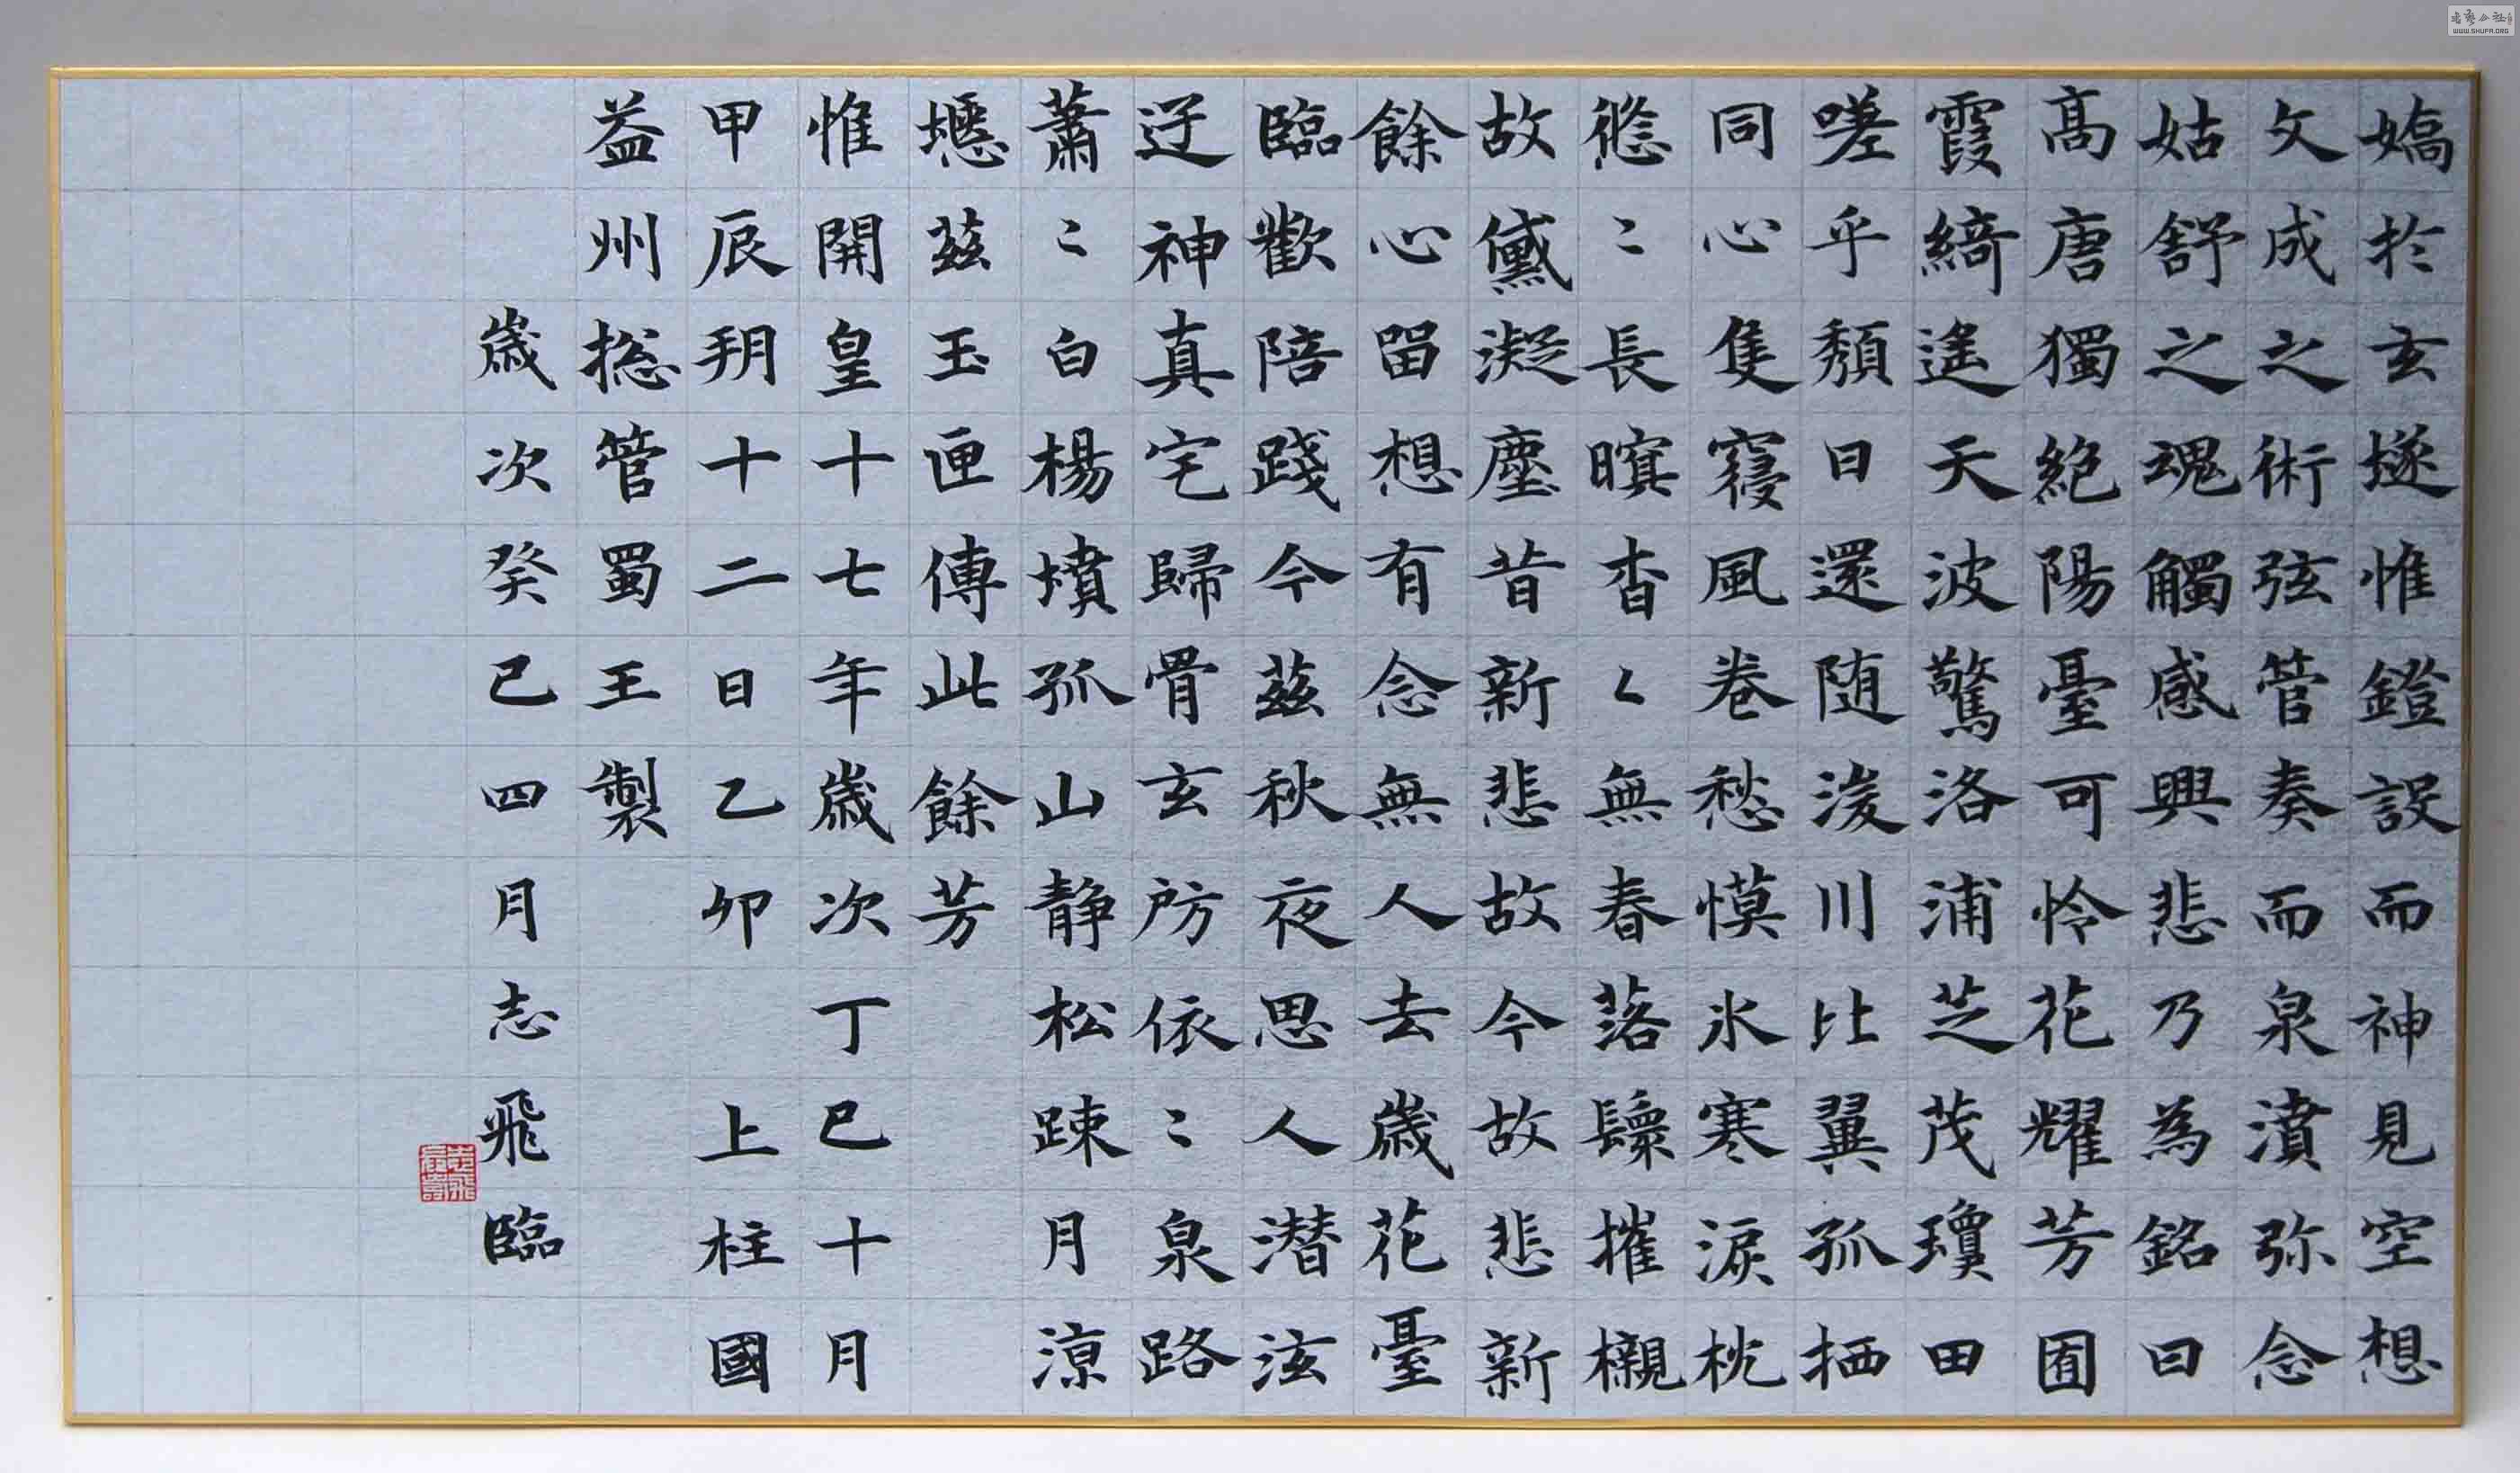 嬌於玄墜惟鐙設而神見空想
文成之術弦管奏而泉濆弥念
姑舒之魂觸感興悲乃為銘曰
高唐獨絶陽臺可怜花耀芳囿
霞綺遥天波驚洛浦芝茂瓊田
嗟乎頹日還随湲川比翼孤栖
同心隻寢風卷愁慔氷寒淚枕
悠〻長暝杳〻無春落鬟摧櫬
故黛凝塵昔新悲故今故悲新
餘心留想有念無人去歲花臺
臨歡陪踐今茲秋夜思人潜泫
迂神真宅歸骨玄房依〻泉路
蕭〻白楊墳孤山静松踈月涼
壥茲玉匣傳此餘芳
惟開皇十七年歲次丁巳十月
甲辰朔十二日乙卯 上柱國
益州揔管蜀王王製
歲次癸巳四月志飛臨
WWW.SHUFA.ORG